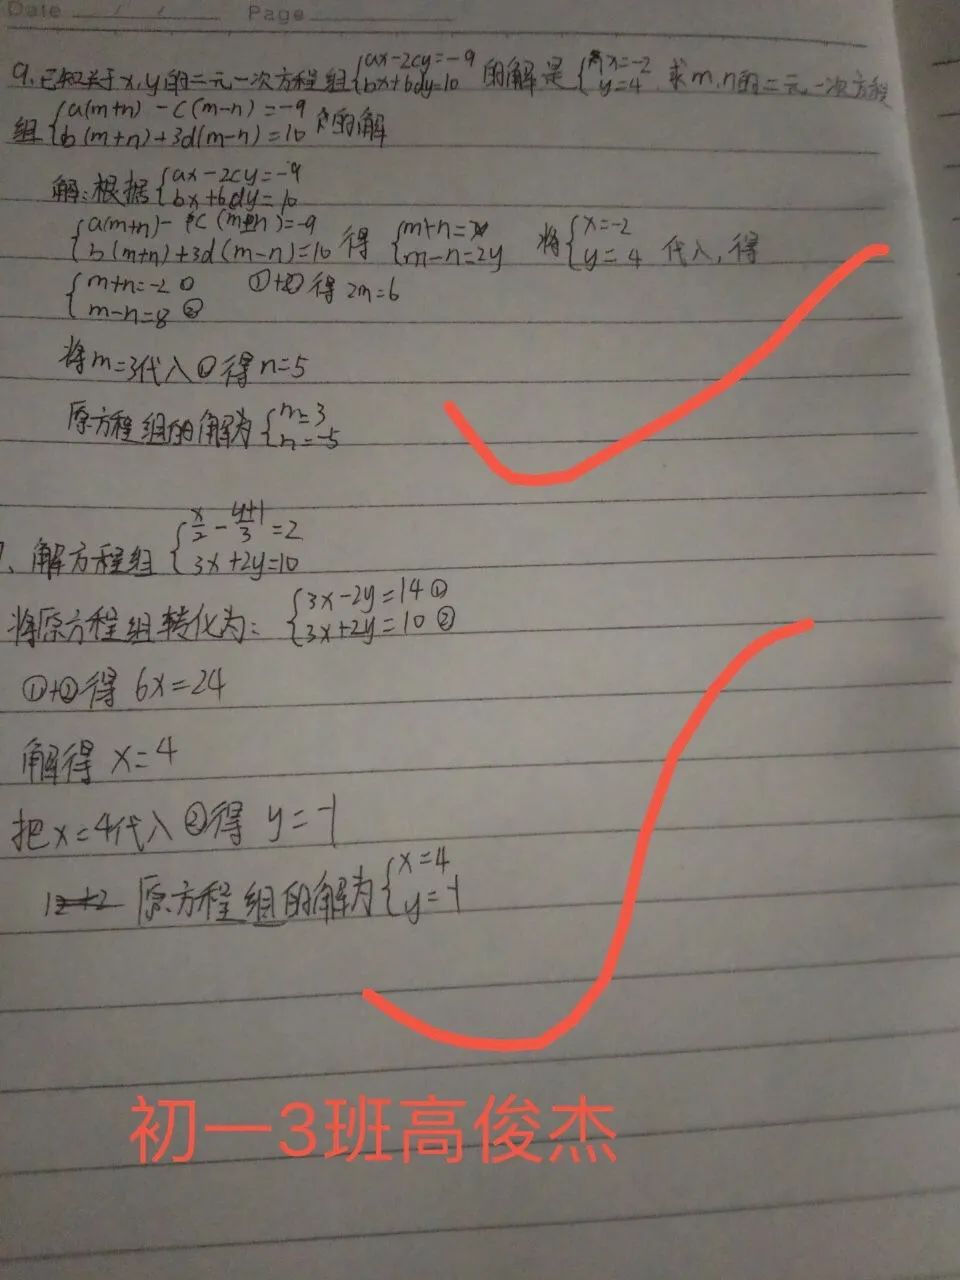 Date / / Page
9.已知关于x,y的二元一次方程组{ax-2cy=-9 bx+6dy=10 的解是{x=-2 y=4,求m,n的二元一次方程
组{a(m+n)-c(m-n)=-9 b(m+n)+3d(m-n)=10 的解
解:根据{ax-2cy=-9 bx+6dy=10
{a(m+n)-c(m-n)=-9 b(m+n)+3d(m-n)=10 得 {m+n=x m-n=2y 将{x=-2 y=4 代入,得
{m+n=-2① m-n=8② ①+②得 2m=6
将m=3代入①得n=5
原方程组的解为{m=3 n=-5
、解方程组{x/2-(y+1)/3=2 3x+2y=10
将原方程组转化为:{3x-2y=14① 3x+2y=10②
①+②得 6x=24
解得 x=4
把x=4代入②得 y=-1
原方程组的解为{x=4 y=-1
初一3班高俊杰